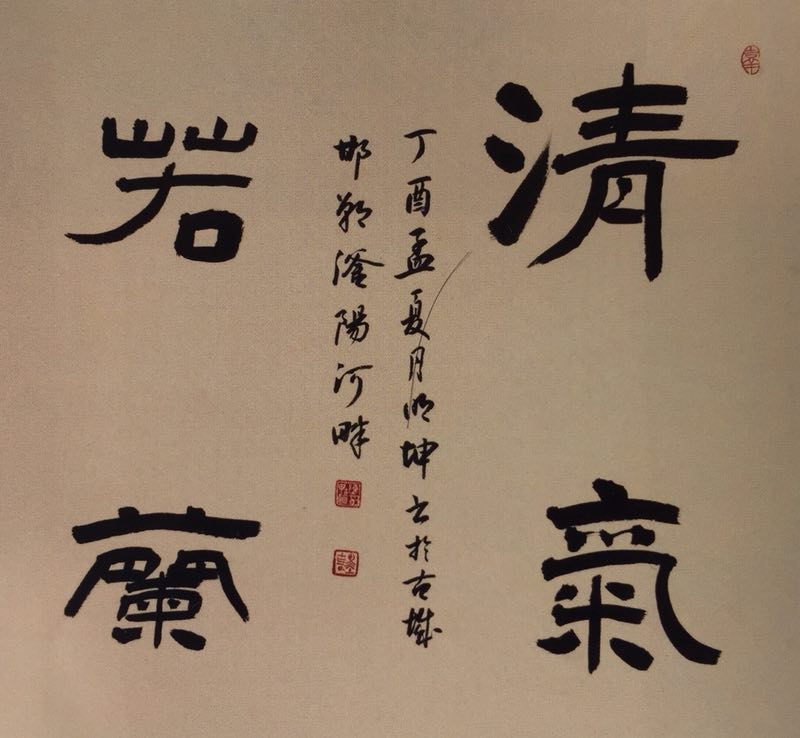 清氣
若蘭
丁酉孟夏月明坤书於古城
邯鄲滏陽河畔